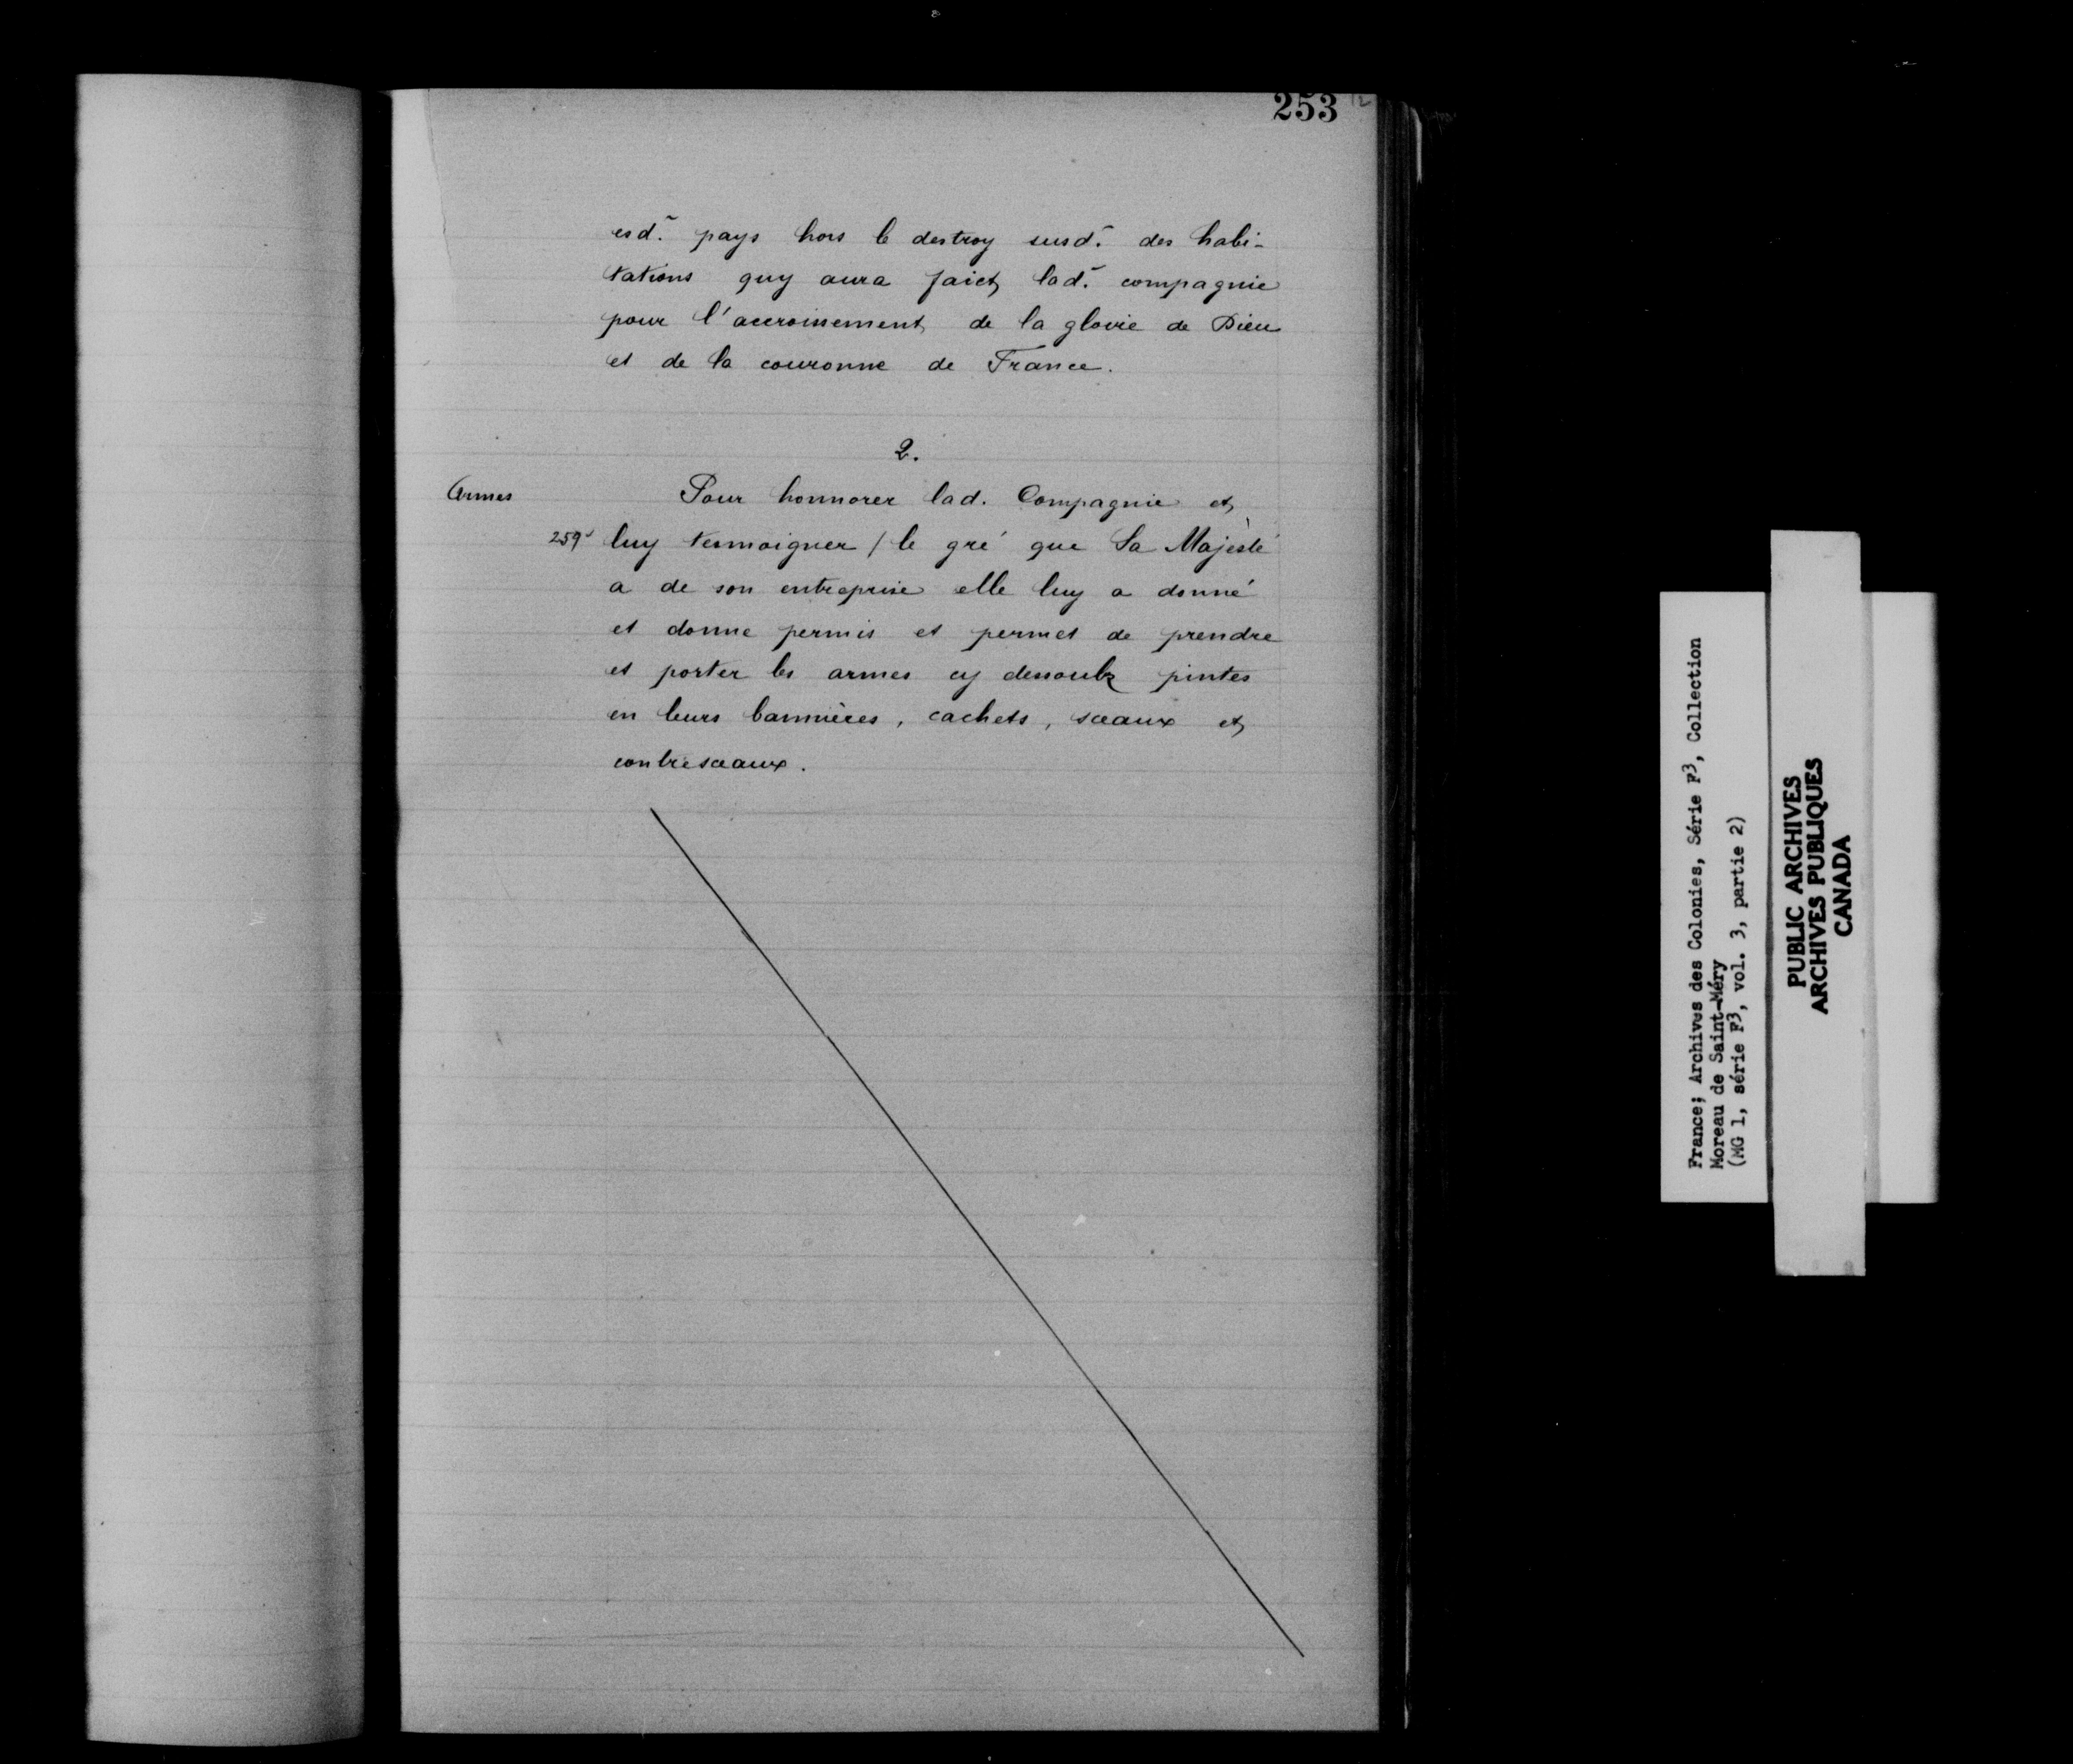 253
esd. pays hors le destroy susd. des habi-
tations quy aura faict lad. compagnie
pour l'accroissement de la gloire de Dieu
et de la couronne de France.
2.
Armes
Pour honnorer lad. Compagnie et
259 luy tesmoigner / le gré que Sa Majesté
a de son entreprise elle luy a donné
et donne permis et permet de prendre
et porter les armes cy dessoubz pintes
en leurs bannières, cachets, sceaux et
contresceaux.
France; Archives des Colonies, Série F3, Collection
Moreau de Saint-Méry
(MG 1, série F3, vol. 3, partie 2)
PUBLIC ARCHIVES
ARCHIVES PUBLIQUES
CANADA